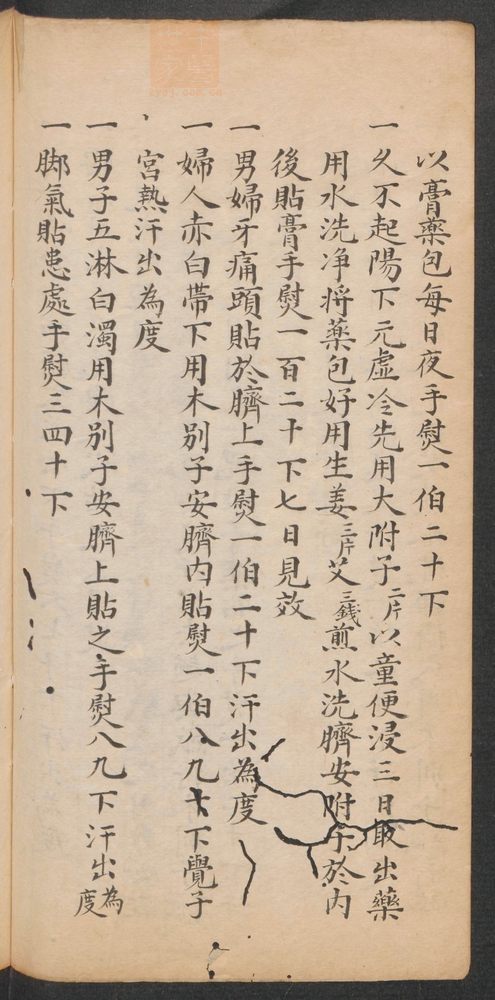 以膏藥包每日夜手熨一伯二十下
一久不起陽下元虛冷先用大附子二片以童便浸三日取出藥
用水洗净将藥包好用生姜三片艾三錢煎水洗臍安附子於內
後貼膏手熨一百二十下七日見效
一男婦牙痛頭貼於臍上手熨一伯二十下汗出為度
一婦人赤白帶下用木别子安臍內貼熨一伯八九十下覺子
宮熱汗出為度
一男子五淋白濁用木别子安臍上貼之手熨八九下汗出為度
一脚氣貼患處手熨三四十下